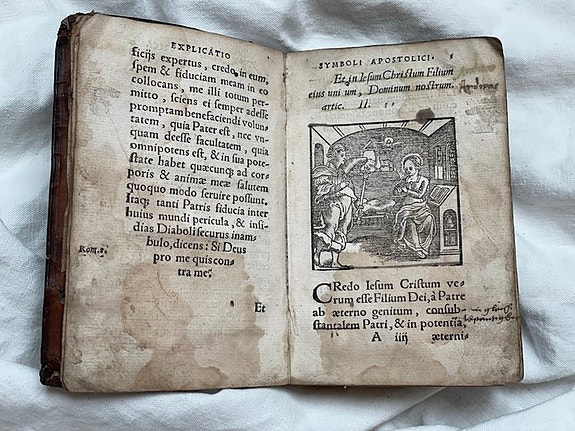 EXPLICATIO
ficijs expertus, credo, in eum,
spem & fiduciam meam in eo
collocans, me illi totum per-
mitto, sciens ei semper adesse
promptam benefaciendi volun-
tatem, quia Pater est, nec vn-
quam deesse facultatem, quia
omnipotens est, & in sua pote-
state habet quæcunq; ad cor-
poris & animæ meæ salutem
quoquo modo seruire possunt.
Itaq; tanti Patris fiducia inter
huius mundi pericula, & insi-
dias Diaboli securus inam-
bulo, dicens: Si Deus
Rom. 8.
pro me quis con-
tra me?
Et
SYMBOLI APOSTOLICI.
Et in Iesum Christum Filium
eius unium, Dominum nostrum.
Andreas
artic. II.
CRedo Iesum Cristum ve-
rum esse Filium Dei, à Patre
ab æterno genitum, consub-
stantalem Patri, & in potentia,
A iiij æterni-